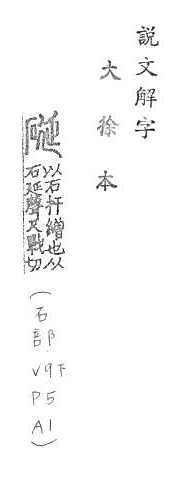 說文解字
大徐本
硟
以石扞繒也从
石延聲尺戰切
(石部 V9下 P5 A1)